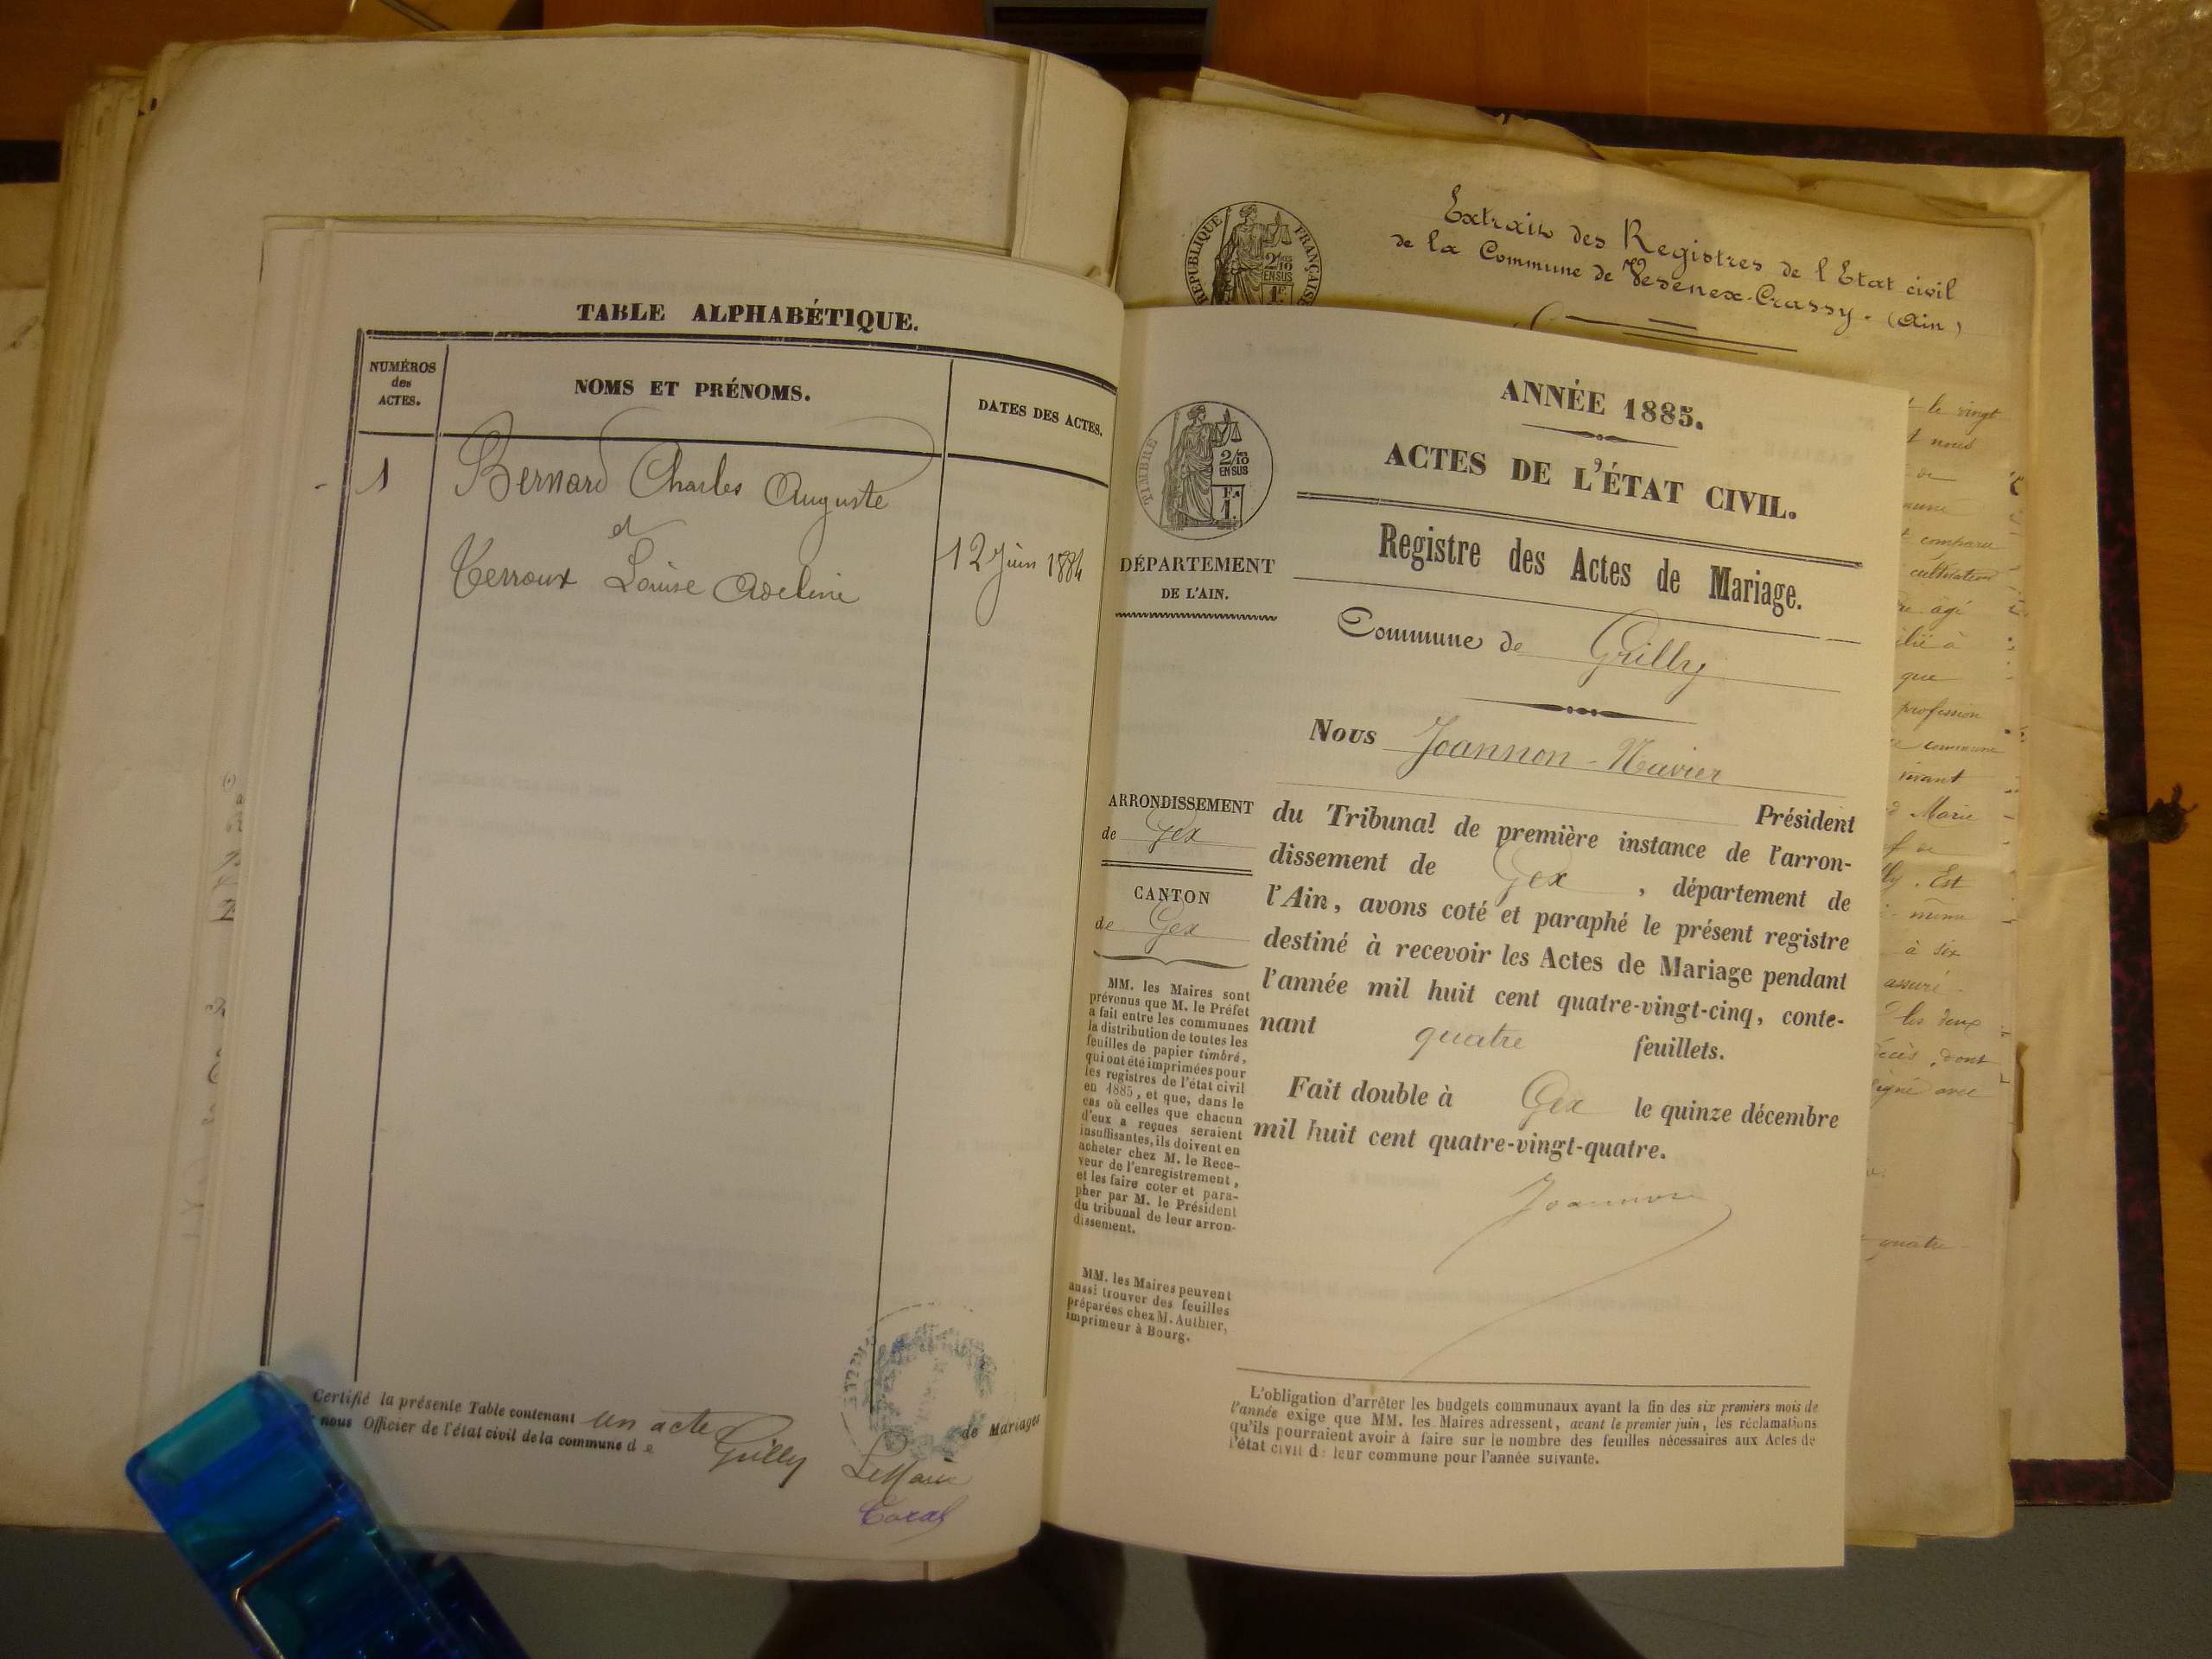 TABLE ALPHABÉTIQUE.
NUMÉROS
des
ACTES.
NOMS ET PRÉNOMS.
DATES DES ACTES.
1
Bernard Charles Auguste
et
Terroux Louise Adeline
12 Juin 1884
Certifié la présente Table contenant un acte de Mariages
nous Officier de l'état civil de la commune de Grilly
Le Maire
RÉPUBLIQUE FRANÇAISE
2/10
EN SUS
1 F.
Extrait des Registres de l'Etat civil
de la Commune de Vesenex-Crassy. (Ain)
ANNÉE 1885.
ACTES DE L'ÉTAT CIVIL.
TIMBRE
2/10
EN SUS
Fr
1.
DÉPARTEMENT
DE L'AIN.
Registre des Actes de Mariage.
Commune de Grilly
Nous Joannon-Navier
Président
du Tribunal de première instance de l'arron-
dissement de Gex, département de
l'Ain, avons coté et paraphé le présent registre
destiné à recevoir les Actes de Mariage pendant
l'année mil huit cent quatre-vingt-cinq, conte-
nant quatre feuillets.
Fait double à Gex le quinze décembre
mil huit cent quatre-vingt-quatre.
Joannon
ARRONDISSEMENT
de Gex
CANTON
de Gex
MM. les Maires sont
prévenus que M. le Préfet
a fait entre les communes
la distribution de toutes les
feuilles de papier timbré,
qui ont été imprimées pour
les registres de l'état civil
en 1885, et que, dans le
cas où celles que chacun
d'eux a reçues seraient
insuffisantes, ils doivent en
acheter chez M. le Rece-
veur de l'enregistrement,
et les faire coter et para-
pher par M. le Président
du tribunal de leur arron-
dissement.
MM. les Maires peuvent
aussi trouver des feuilles
préparées chez M. Authier,
imprimeur à Bourg.
L'obligation d'arrêter les budgets communaux avant la fin des six premiers mois de
l'année exige que MM. les Maires adressent, avant le premier juin, les réclamations
qu'ils pourraient avoir à faire sur le nombre des feuilles nécessaires aux Actes de
l'état civil de leur commune pour l'année suivante.
le vingt
nous
de
comparu
cultivateur
âgé
à
que
profession
commune
vivant
Marie
Est
à six
assuré
les deux
décès, dont
signé avec
quatre